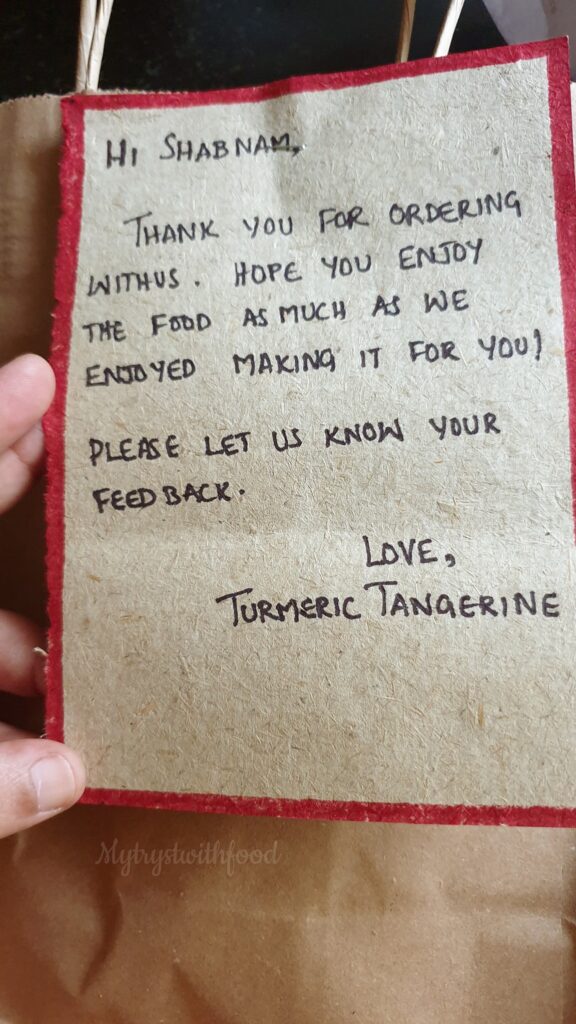 HI SHABNAM,
THANK YOU FOR ORDERING
WITHUS. HOPE YOU ENJOY
THE FOOD AS MUCH AS WE
ENJOYED MAKING IT FOR YOU!
PLEASE LET US KNOW YOUR
FEEDBACK.
LOVE,
TURMERIC TANGERINE
Mytrystwithfood